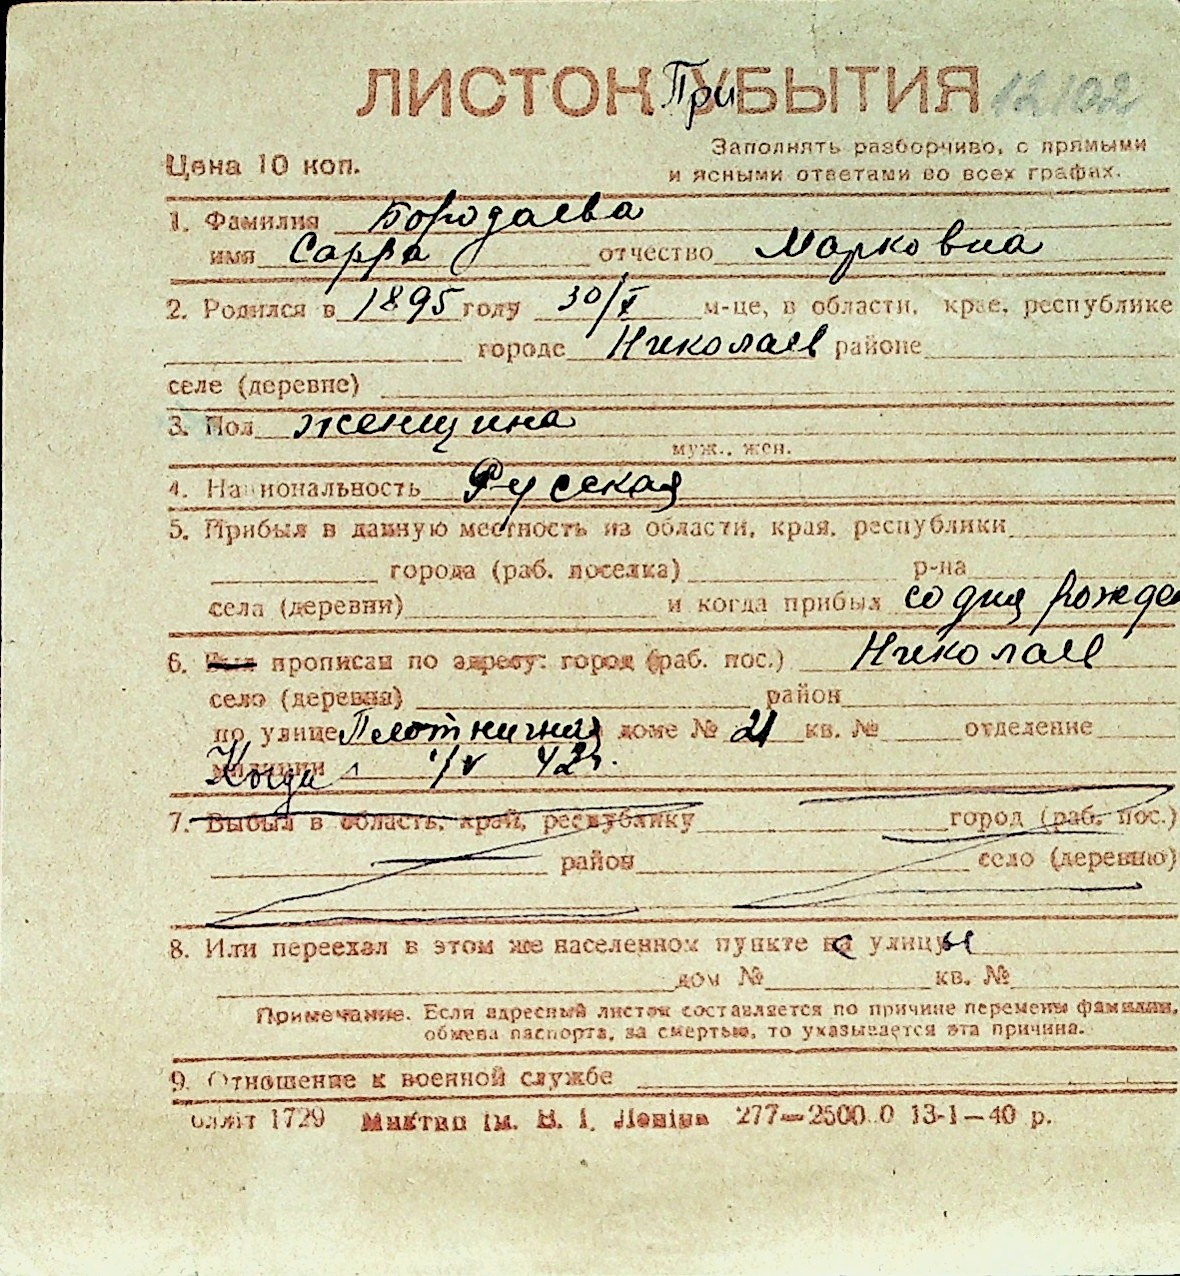 ЛИСТОК ПриУБЫТИЯ 12102
Цена 10 коп.
Заполнять разборчиво, с прямыми
и ясными ответами во всех графах.
1. Фамилия Бородаева
имя Сарра отчество Марковна
2. Родился в 1895 году 30/X м-це, в области, крае, республике
городе Николаев районе
селе (деревне)
3. Пол женщина
муж., жен.
4. Национальность Русская
5. Прибыл в данную местность из области, края, республики
города (раб. поселка) р-на
села (деревни) и когда прибыл со дня рожде
6. Был прописан по адресу: город (раб. пос.) Николаев
село (деревня) район
по улице Плотничная доме № 21 кв. № отделение
милиции Когда 1/V 42г.
7. Выбыл в область, край, республику город (раб. пос.)
район село (деревню)
8. Или переехал в этом же населенном пункте с улицы
дом № кв. №
Примечание. Если адресный листок составляется по причине перемены фамилии,
обмена паспорта, за смертью, то указывается эта причина.
9. Отношение к военной службе
1729 ім. В. І. Леніна 277—2500 0 13-1—40 р.